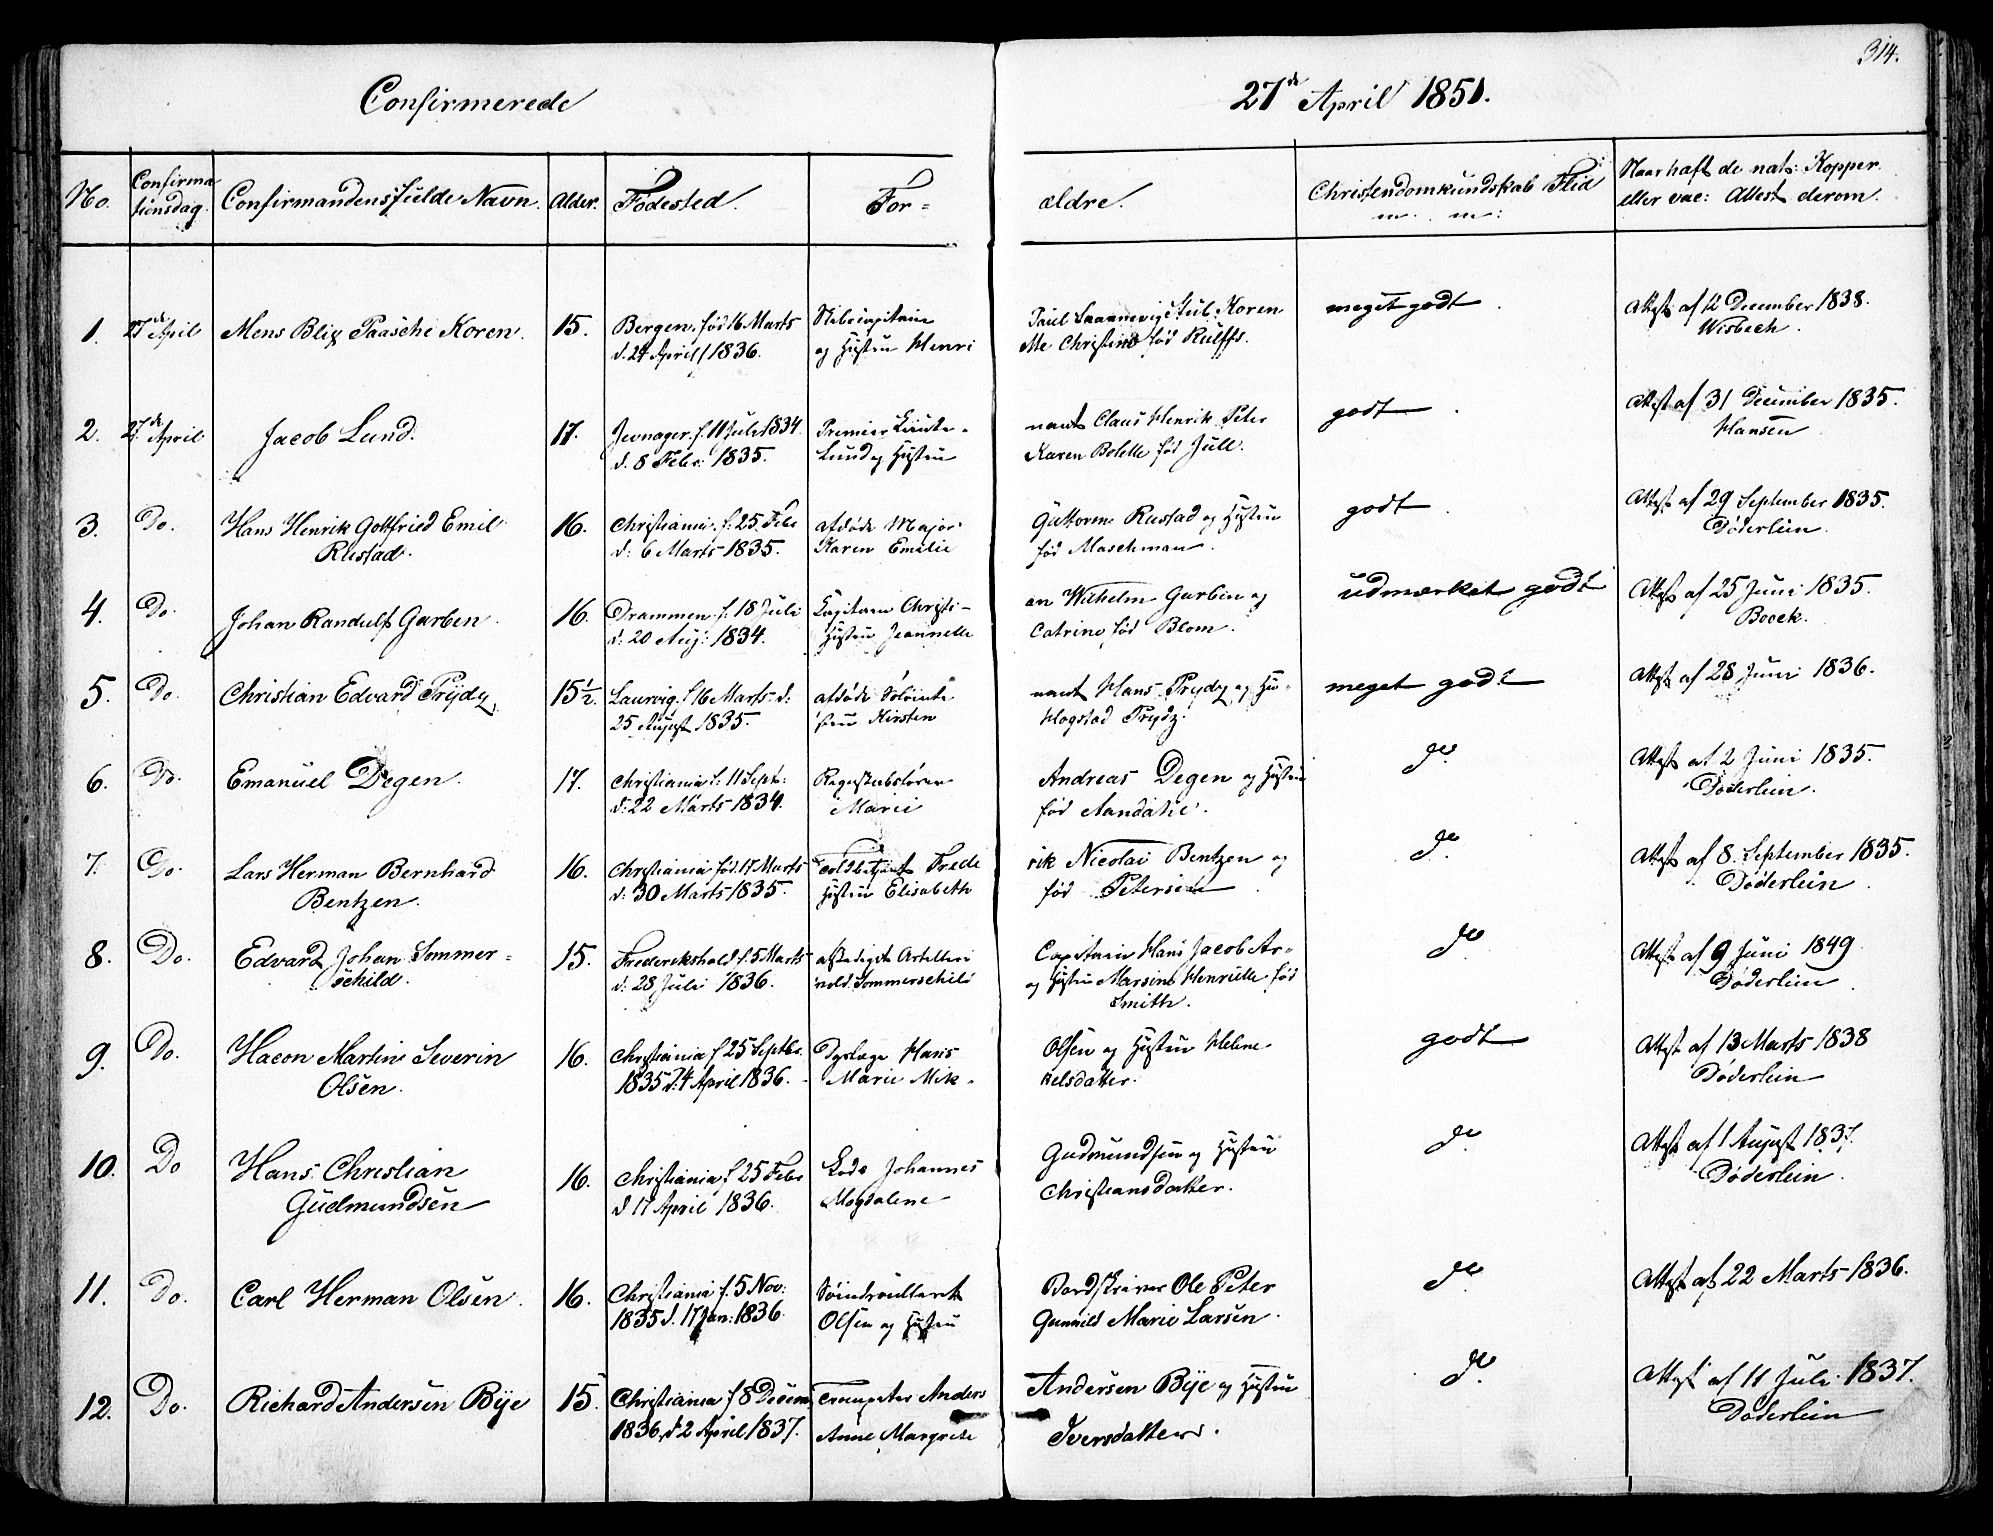 314.
Confirmerede 27de April 1851.
No. Confirma- Confirmandens fulde Navn. Alder. Fødested. For- ældre. Christendomskundskab Flid Naar haft de nat: Kopper
tionsdag. m. m: eller vac: Attest derom.
1. 27de April Mens Blix Paasche Koren. 15. Bergen. fød 16 Marts Stabscapitain Paul Koren meget godt Attest af 12 December 1838.
d. 24 April 1836. og Hustru Henri ette Christine fød Rulffs. Wisbech.
2. 27de April Jacob Lund. 17. Jevnager. f. 11 Juli 1834 Premier Lieute- nant Claus Henrik Peter godt Attest af 31 December 1835.
d. 8 Febr: 1835. Lund og Hustru Karen Bolette fød Juell. Hansen
3. Do. Hans Henrik Gottfried Emil 16. Christiania. f. 25 Febr afdøde Major Guttorm Rustad og Hustru godt Attest af 29 September 1835.
Rustad. d: 6 Marts 1835. Karen Emilie fød Maschman. Døderlein.
4. Do Johan Randulf Garben. 16. Drammen. f. 18 Juli Kapitain Christi- an Wilhelm Garben og udmærket godt Attest af 25 Juni 1835.
d: 20 Aug: 1834. Hustru Jeannette Catrine fød Blom. Boeck.
5. Do. Christian Edvard Trydz, 15½. Laurvig. f 16 Marts. d: afdøde Sølieute nant Hans Trydz og Hu- meget godt Attest af 28 Juni 1836.
25 August 1835. stru Kirsten Hogstad Trydz.
6. Do. Emanuel Degen. 17. Christiania f. 11 Sept: Regnskabsfører Andreas Degen og Hustru do. Attest af 2 Juni 1835.
d: 22 Marts 1834. Marie fød Døderlein.
7. Do. Lars Herman Bernhard 16. Christiania fød 17 Marts Toldbetjent Frede rik Nicolai Bentzen og do. Attest af 8. September 1835.
Bentzen. d: 30 Marts 1835. Hustru Elisabeth fød Petersen Døderlein
8. Do. Edvard Johan Sommer- 15. Frederikshald f. 5 Marts afskediget Artelleri Capitain Hans Jacob Ar- do Attest af 9 Juni 1849.
schild. d: 28 Juli 1836. nold Sommerschild og Hustru Marsine Henriette fød Døderlein
Smith.
9. Do. Hacon Martin Severin 16. Christiania f 25 Septbr. Dyrlæge Hans Olsen og Hustru Helene godt Attest af 13 Marts 1838
Olsen. 1835 d: 4 April 1836. Marie Mik- kelsdatter. Døderlein
10. Do Hans Christian 16. Christiania f 25 Febr Lods Johannes Gudmundsen og Hustru do. Attest af 1 August 1837.
Gudmundsen d 17 April 1836. Magdalene Christiansdatter. Døderlein
11. Do. Carl Herman Olsen. 16. Christiania f. 5 Nov: Søindroulleret Bordskriver Ole Peter do. Attest af 22 Marts 1836.
1835 d. 17 Jan: 1836. Olsen og Hustru Gunnild Marie Larsen.
12. Do. Richard Andersen Bye 15. Christiania f 8 Decem Trompeter Anders Andersen Bye og Hustru do. Attest af 11 Juli 1837.
1836, d. 2 April 1837. Anne Margrete Iversdatter. Døderlein